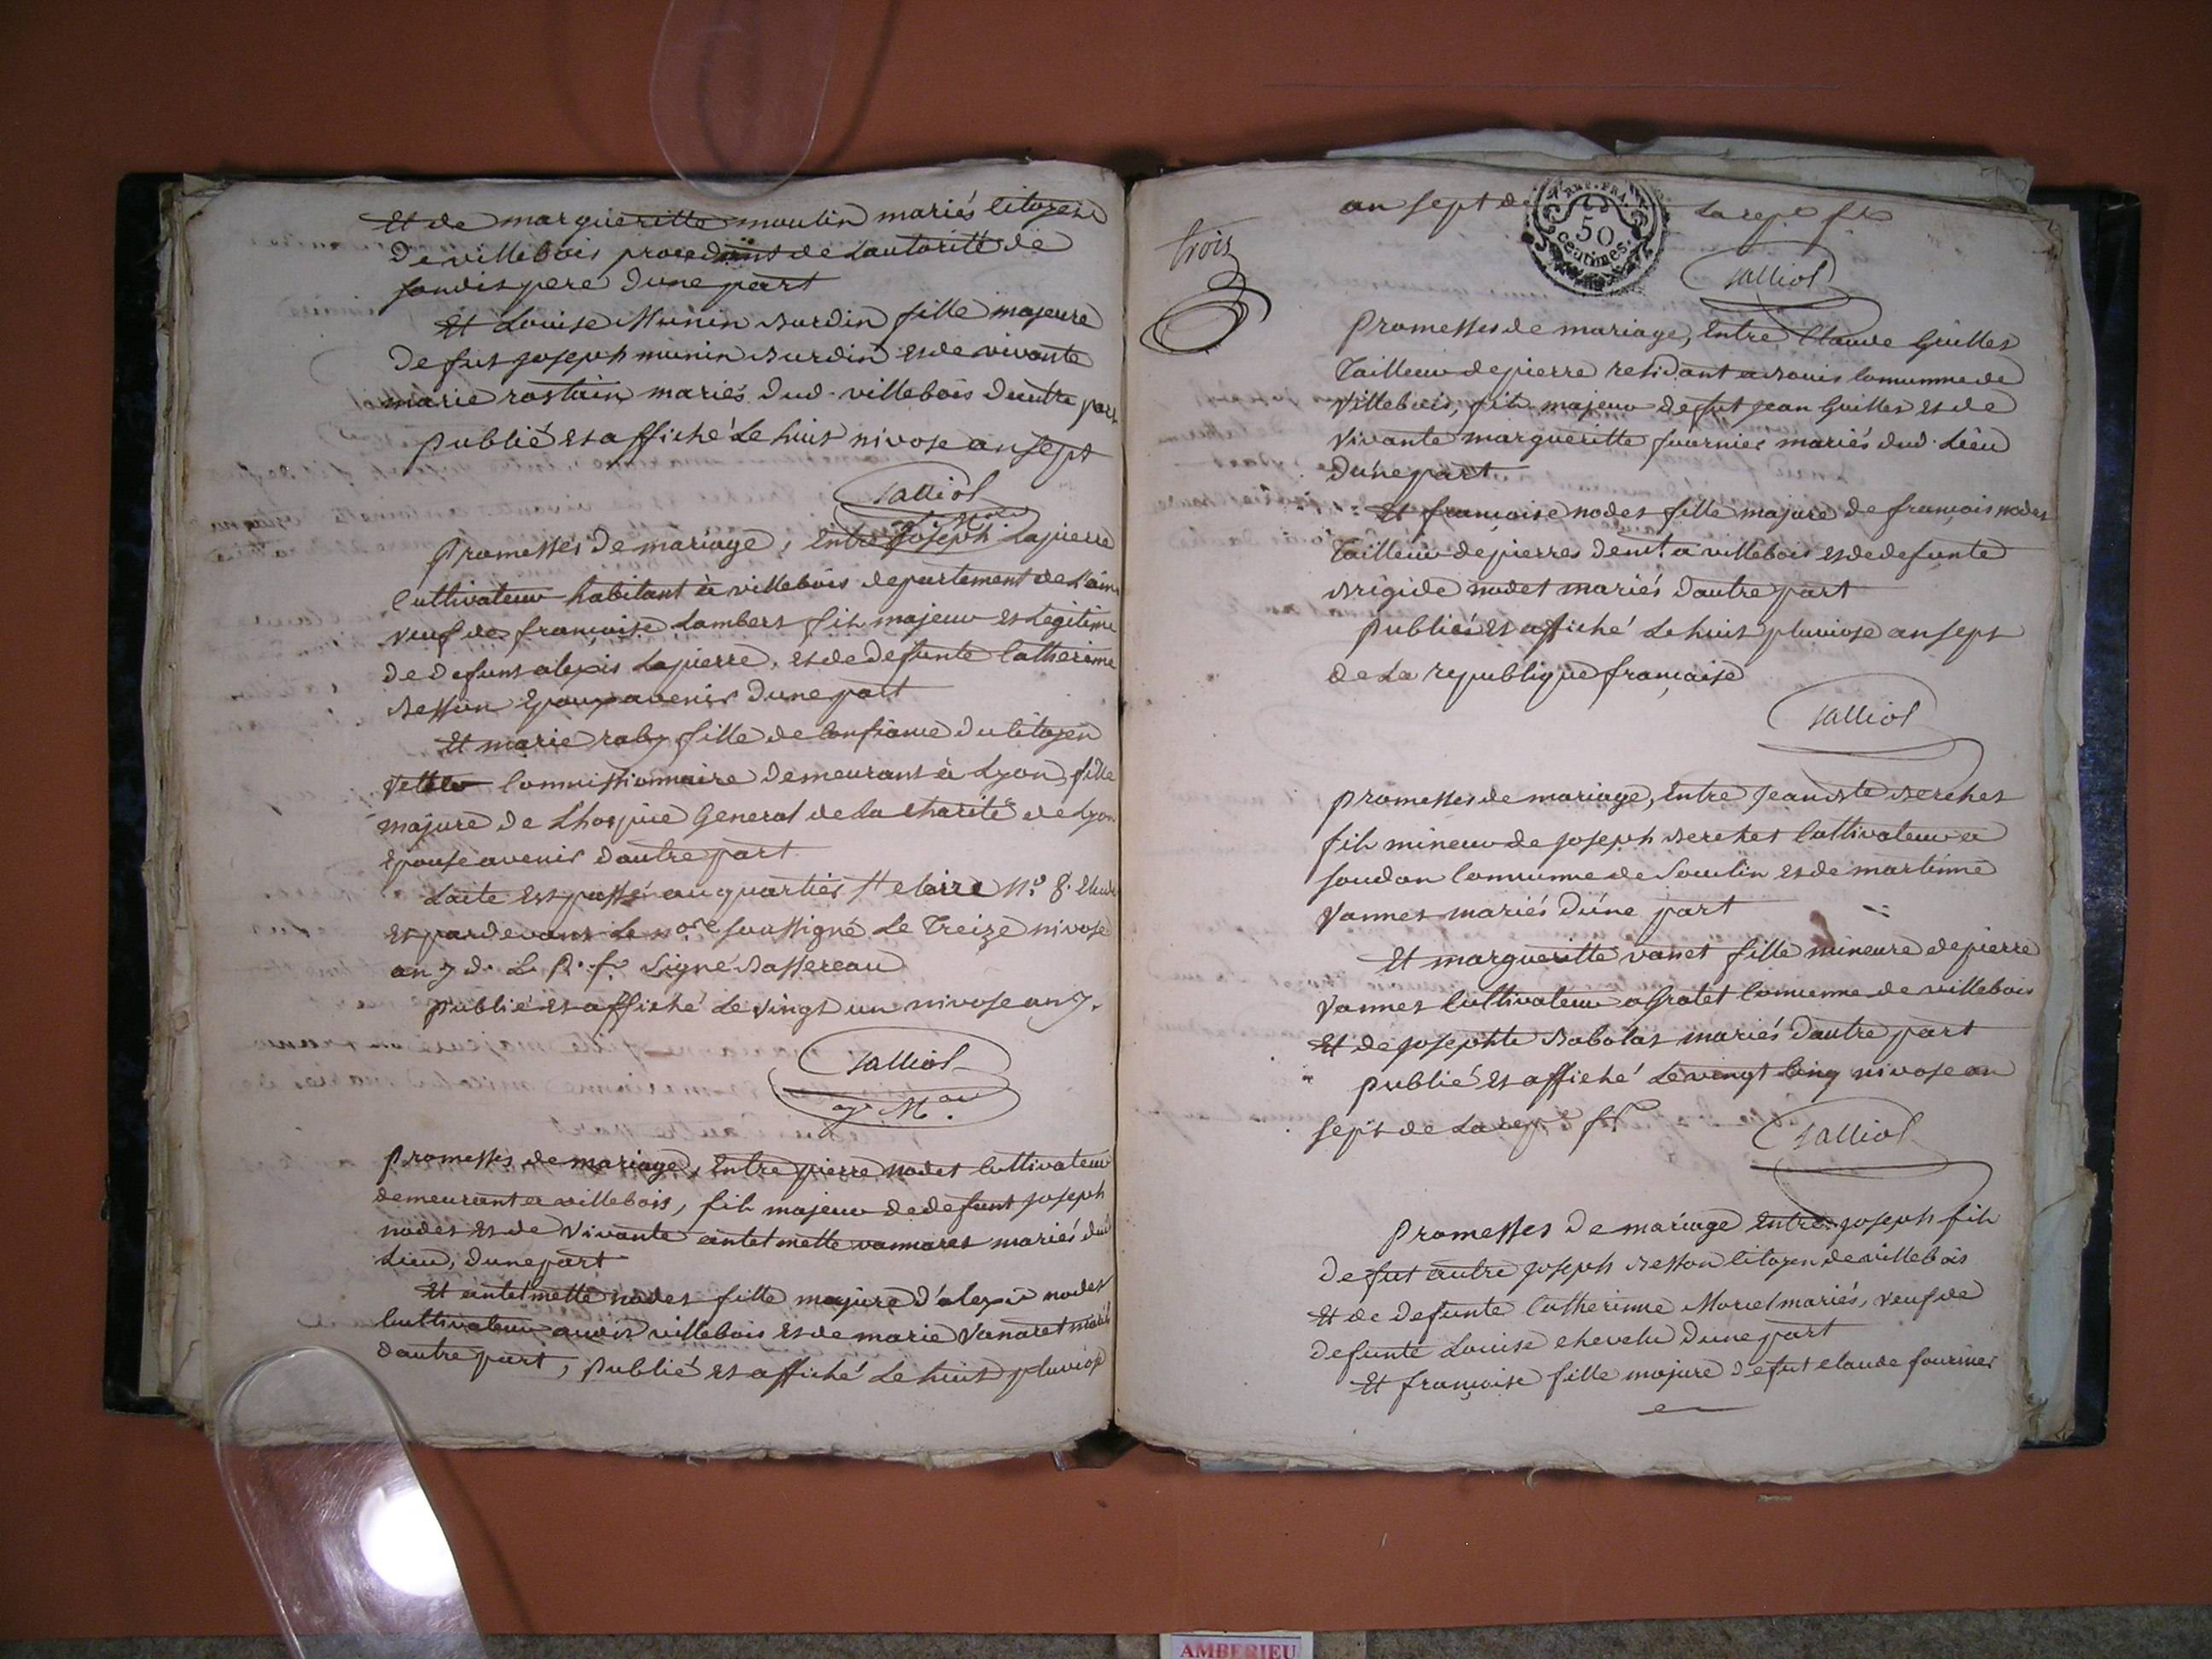 Et de margueritte moulin mariés Citoyens
De villebois procedant de Lautorité de
sondit pere Dune part
Et Louise Munin Burdin fille majeure
De fut joseph munin Burdin et de vivante
marie rostain mariés dud. villebois Dautre part
publié et affiché Le huit nivose an sept
Salliol
Promesses De mariage, Entre Joseph Lapierre
Cultivateur habitant à villebois departement de L'ain
veuf de françoise Lambert fils majeur et Legitime
de Defunt alexis Lapierre, et de Defunte Catherinne
Besson Epoux avenir Dune part
Et marie raby fille de Confiance Du Citoyen
Commissionnaire Demeurant à Lyon, fille
majure De Lhospice General de la charité de Lyon
Epouse avenir Dautre part
Lacte Est passé au quartier Ste claire No. 8. Etude
Et pardevant Le nore soussigné Le Treize nivose
an 7 d. L. R. f. Signé Bassereau
publié et affiché Le vingt un nivose an 7.
Salliol
promesses de mariage, Entre pierre nodet Cultivateur
demeurant a villebois, fils majeur de defunt joseph
nodet et de Vivante antelmette vannaret mariés dud
Lieu, Dune part
Et antelmette nodet fille majure d'alexis nodet
Cultivateur audit villebois et de marie Vanaret mariés
Dautre part, publié et affiché Le huit pluviose
trois
an sept de La repe fse
REP. FRA.
50
centimes.
Salliol
Promesses de mariage, Entre Claude Guillet
Tailleur de pierre residant a Bouis Commune de
Villebois, fils majeur de fut jean Guillet et de
Vivante margueritte fournier mariés dud. Lieu
Dune part
Et françoise nodet fille majure de françois nodet
Tailleur de pierres demt a villebois et de defunte
Brigide nodet mariés Dautre part
Publiés Et affiché Le huit pluviose an sept
de La republique française
Salliol
promesses de mariage, Entre Jean Bte Berchet
fils mineur de joseph Berchet Cultivateur a
soudon Commune de Soulin et de martinne
Vannet mariés Dune part
Et margueritte vanet fille mineure de pierre
Vannet Cultivateur a Commune de villebois
Et de josephte Babolat mariés Dautre part
publié Et affiché Le vingt Cinq nivose an
sept de La rep. fr.
Salliol
Promesses De mariage Entre joseph fils
De fut autre joseph Besson Citoyen de villebois
Et de Defunte Catherinne Morel mariés, veuf de
defunte Louise chevelu Dune part
Et françoise fille majure De fut claude fournier
AMBERIEU